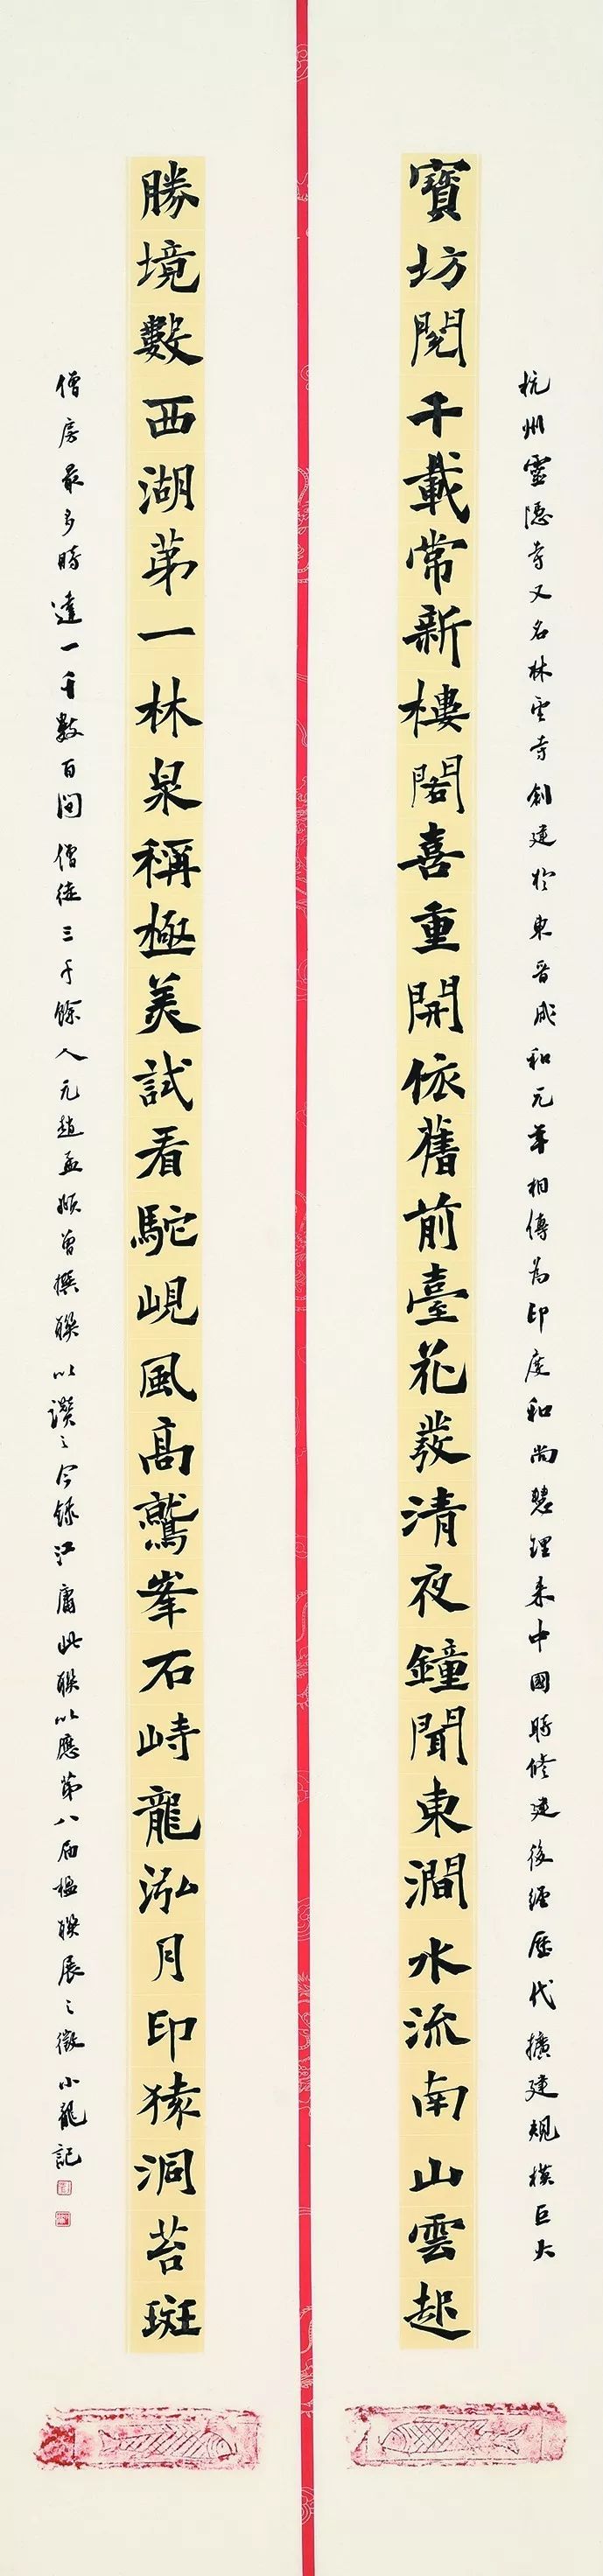 杭州靈隱寺又名林雲寺創建於東晉咸和元年相傳為印度和尚慧理來中國時修建後經歷代擴建規模巨大
寶坊閱千載常新樓閣喜重開依舊前臺花發清夜鐘聞東澗水流南山雲起
勝境數西湖第一林泉稱極美試看駝峴風高鷲峯石峙龍泓月印猿洞苔斑
僧房最多時達一千數百間僧徒三千餘人元趙孟頫曾撰聯以讚之今錄江庸此聯以應第八屆楹聯展之徵小龍記